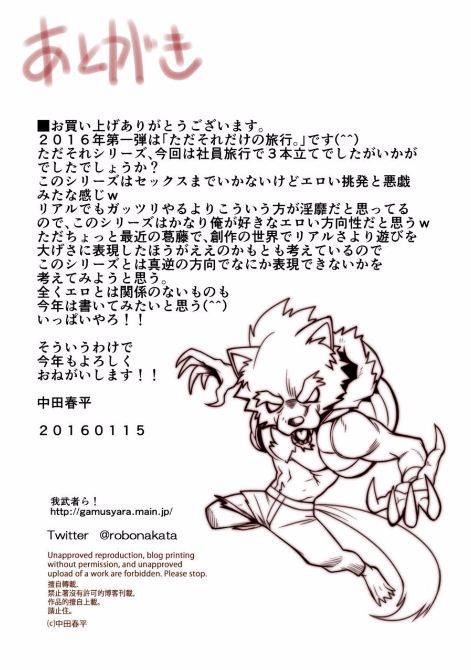 あとがき
■お買い上げありがとうございます。
２０１６年第一弾は「ただそれだけの旅行。」です(^^)
ただそれシリーズ、今回は社員旅行で３本立てでしたがいかが
でしたでしょうか？
このシリーズはセックスまでいかないけどエロい挑発と悪戯
みたな感じｗ
リアルでもガッツリやるよりこういう方が淫靡だと思ってる
ので、このシリーズはかなり俺が好きなエロい方向性だと思うｗ
ただちょっと最近の葛藤で、創作の世界でリアルさより遊びを
大げさに表現したほうがええのかもとも考えているので
このシリーズとは真逆の方向でなにか表現できないかを
考えてみようと思う。
全くエロとは関係のないものも
今年は書いてみたいと思う(^^)
いっぱいやろ！！
そういうわけで
今年もよろしく
おねがいします！！
中田春平
２０１６０１１５
我武者ら！
http://gamusyara.main.jp/
Twitter　@robonakata
Unapproved reproduction, blog printing
without permission, and unapproved
upload of a work are forbidden. Please stop.
擅自轉載、
禁止著沒有許可的博客刊載、
作品的擅自上載。
請止住。
(c)中田春平